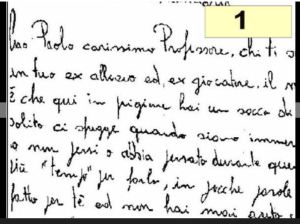 1
Paolo carissimo Professore, chi ti s
un tuo ex allievo ed ex giocatore, il m
È che qui in prigione hai un sacco di
solito ci sfugge quando siamo immer
o non pensi o abbia pensato durante que
più "tempo" per farlo, in poche parole
fatto per te ed non hai mai